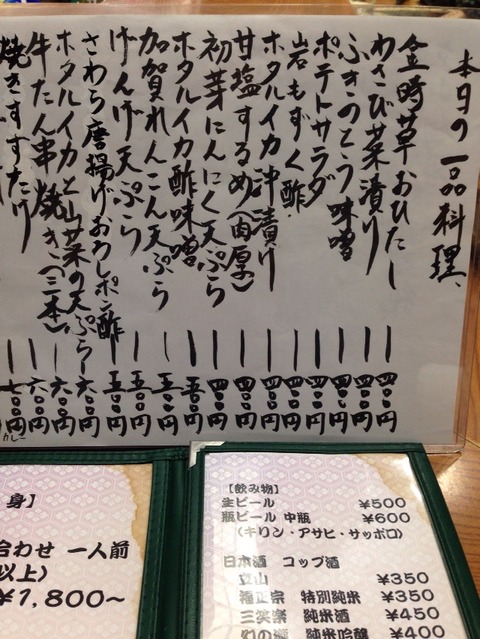 本日の一品料理、
金時草おひたし ー 四〇〇円
わさび菜漬け ー 四〇〇円
ふきのとう味噌 ー 四〇〇円
ポテトサラダ ー 四〇〇円
岩もずく酢 ー 四〇〇円
ホタルイカ沖漬け ー 四〇〇円
甘塩するめ(肉厚) ー 四〇〇円
初芽にんにく天ぷら ー 四〇〇円
ホタルイカ酢味噌 ー 五〇〇円
加賀れんこん天ぷら ー 五〇〇円
げんげ天ぷら ー 五〇〇円
さわら唐揚げおろしポン酢 ー 六〇〇円
ホタルイカと山菜の天ぷら ー 六〇〇円
牛たん串焼き(二本) ー 六〇〇円
焼きすすたけ ー 七〇〇円
身】
合わせ 一人前
以上)
¥1,800~
【飲み物】
生ビール ¥500
瓶ビール 中瓶 ¥600
(キリン・アサヒ・サッポロ)
日本酒 コップ酒
立山 ¥350
福正宗 特別純米 ¥350
三笑楽 純米酒 ¥450
幻の瀧 純米吟醸 ¥400